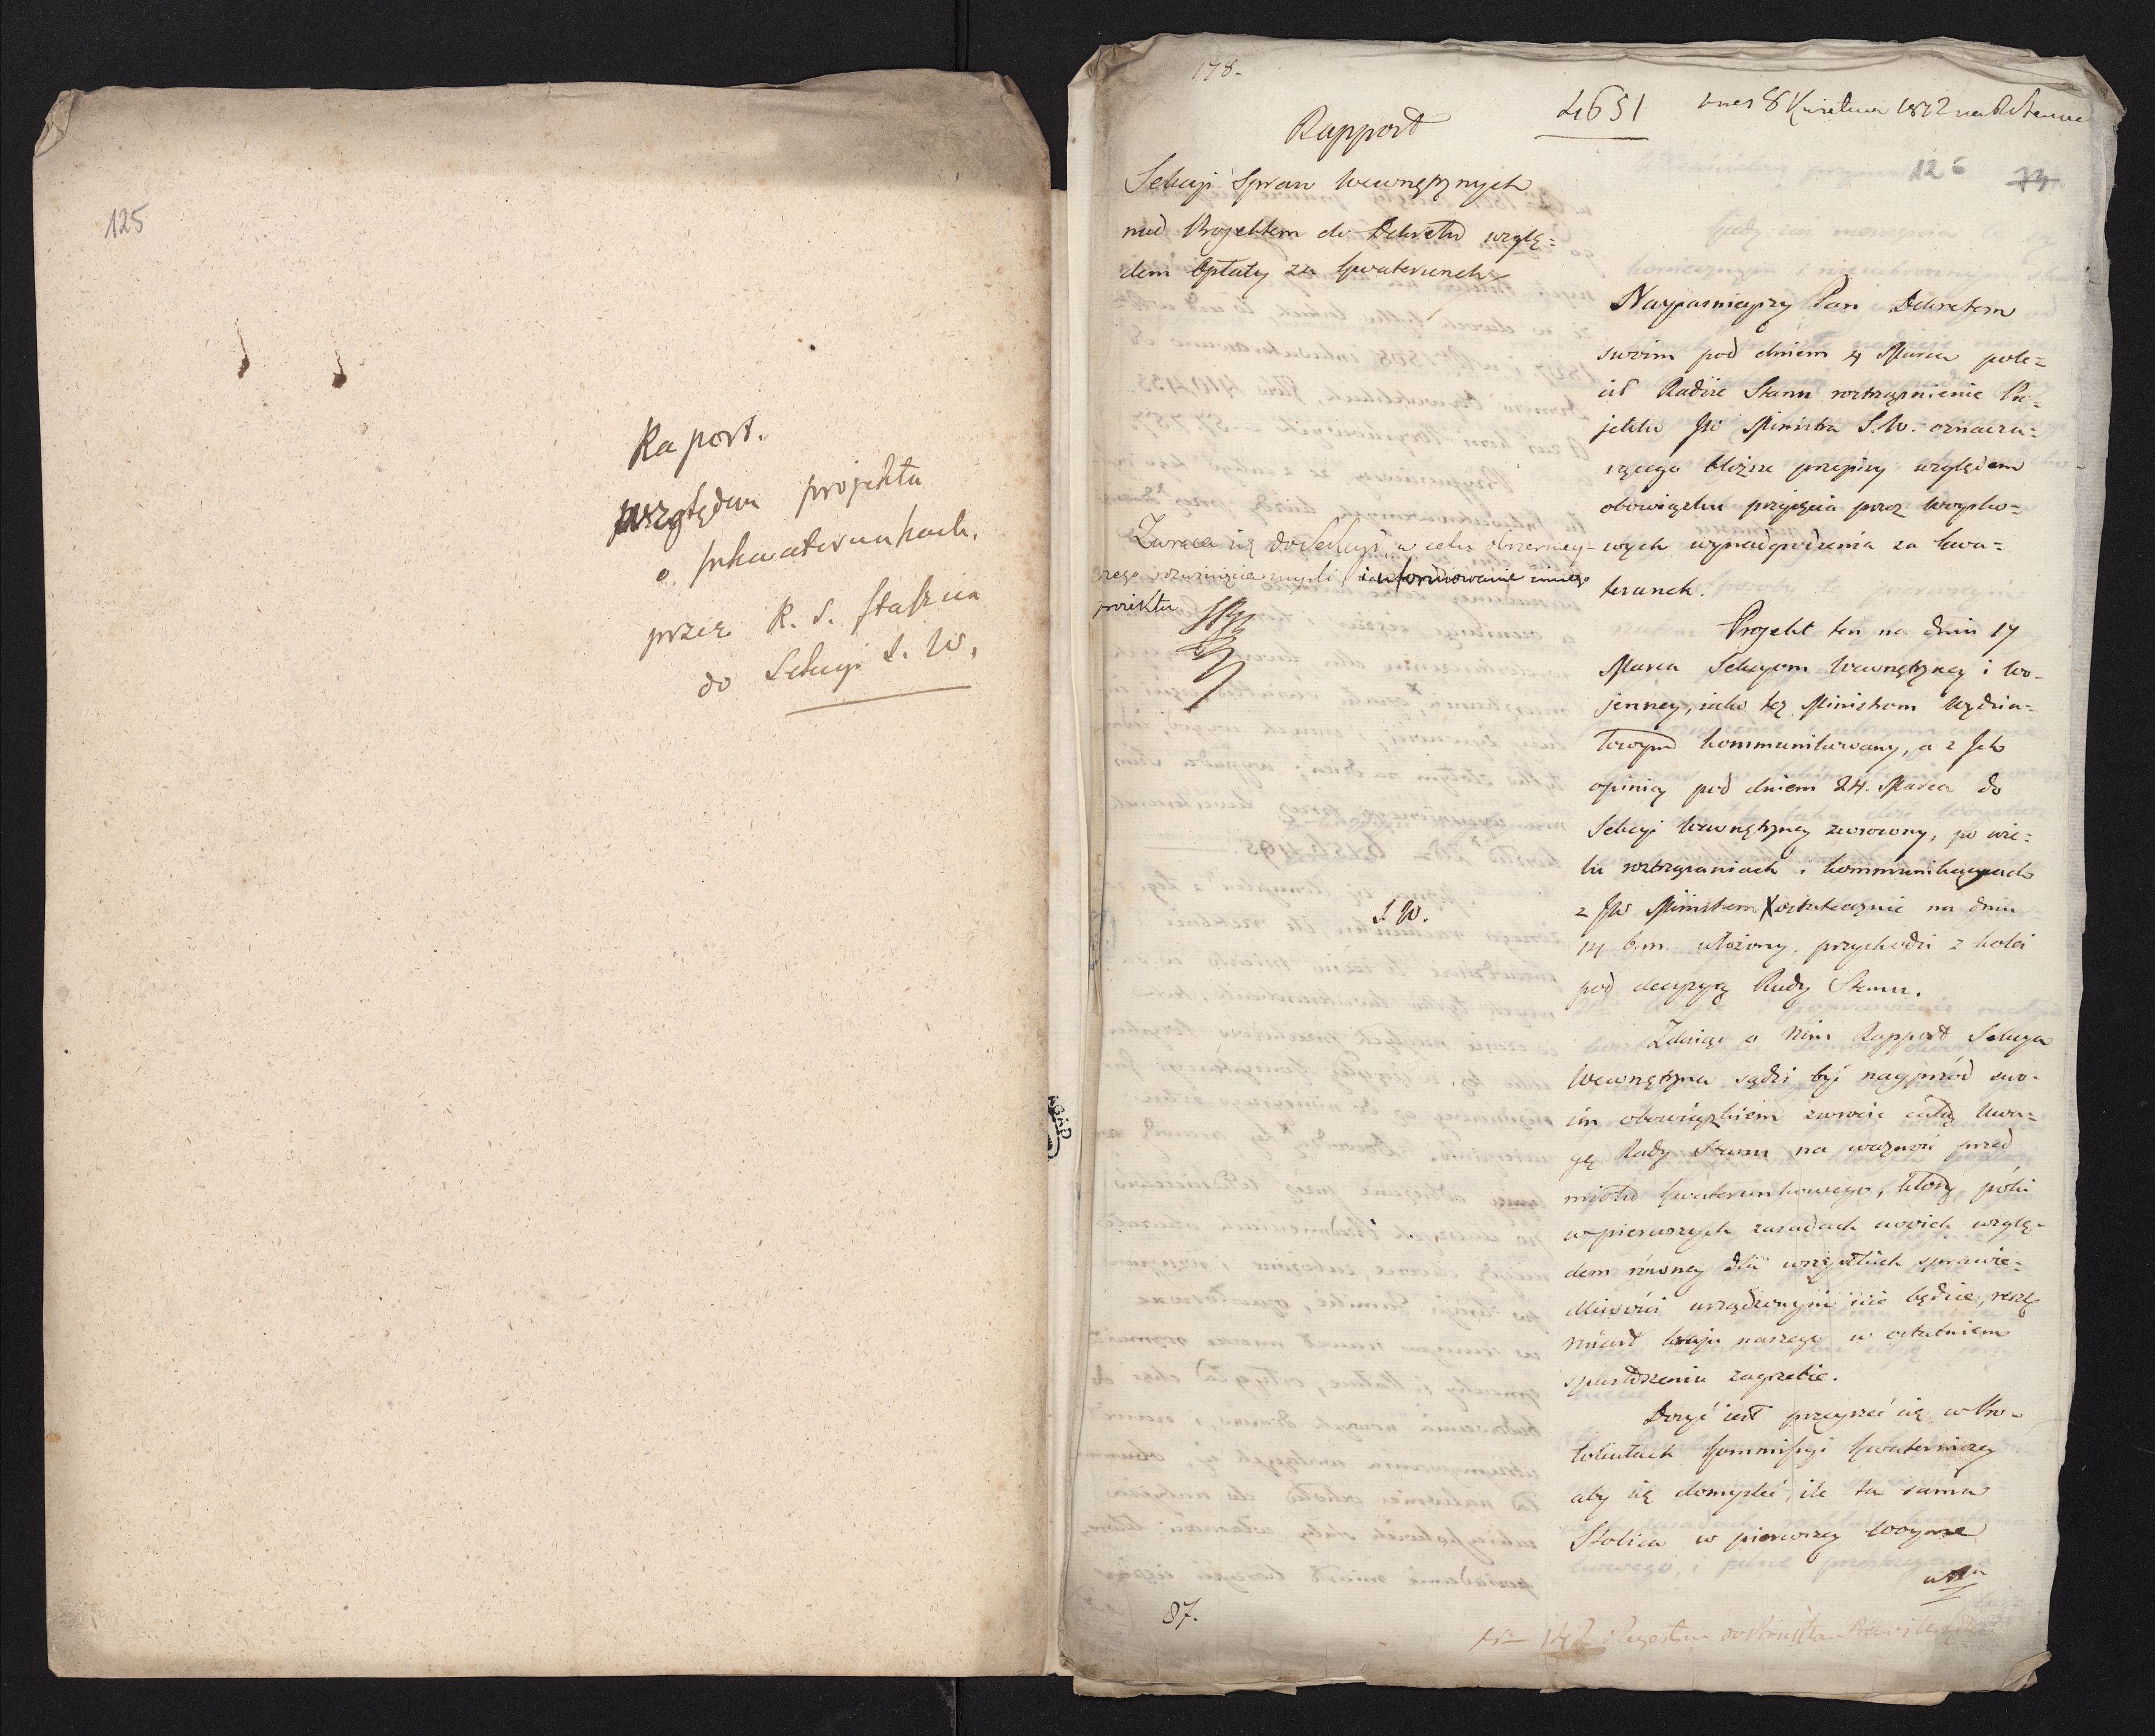 125
Raport.
względem projektu
o Inkwaterunkach,
przez R. S. Staszica
do Sekcyi S. W.
178.
4651
dnia 8 Kwietnia 1812 na R Stanu
126
74
Rapport
Sekcyi Spraw Wewnętrznych
nad Projektem do Dekretu wzglę=
dem Opłaty za kwaterunek
Zwraca się do Sekcyi, w celu obszerniey-
szego rozwinięcia myśli i uformowanie innego
proiektu
S. W.
Nayjaśnieyszy Pan Dekretem
swoim pod dniem 4 Marca pole=
cił Radzie Stanu roztrząśnienie Pro-
jektu JW Ministra S. W. oznacza=
iącego bliższe przepisy względem
obowiązku przyięcia przez Woysko=
wych wynadgrodzenia za kwa=
terunek.
Projekt ten na dniu 17
Marca Sekcyom Wewnętrzney i Wo-
jenney, iako też Ministrom Wydzia=
łowym kommunikowany, a z Ich
opinią pod dniem 24. Marca do
Sekcyi Wewnętrzney zwrócony, po wie=
lu roztrząsaniach i kommunikacyach
z JW Ministrem X ostatecznie na dniu
14 b. m. ułożony, przychodzi z kolei
pod decyzyą Rady Stanu.
Zdaiąc o Nim Rapport Sekcya
Wewnętrzna sądzi być nayprzód swo-
im obowiązkiem zwrócić całą Uwa=
gę Rady Stanu na ważność przed
miotu kwaterunkowego, który póki
w pierwszych zasadach swoich wzglę-
dem równey dla wszystkich sprawie=
dliwości urządzonym nie będzie, resztę
miast kraju naszego w ostatniem
spustoszeniu zagrzebie.
Dosyć iest przeyrzeć się w Pro-
tokułach Kommissyi Kwaterniczey
aby się domyśleć, ile ta sama
Stolica w pierwszey Woynie
87.
Nro 142